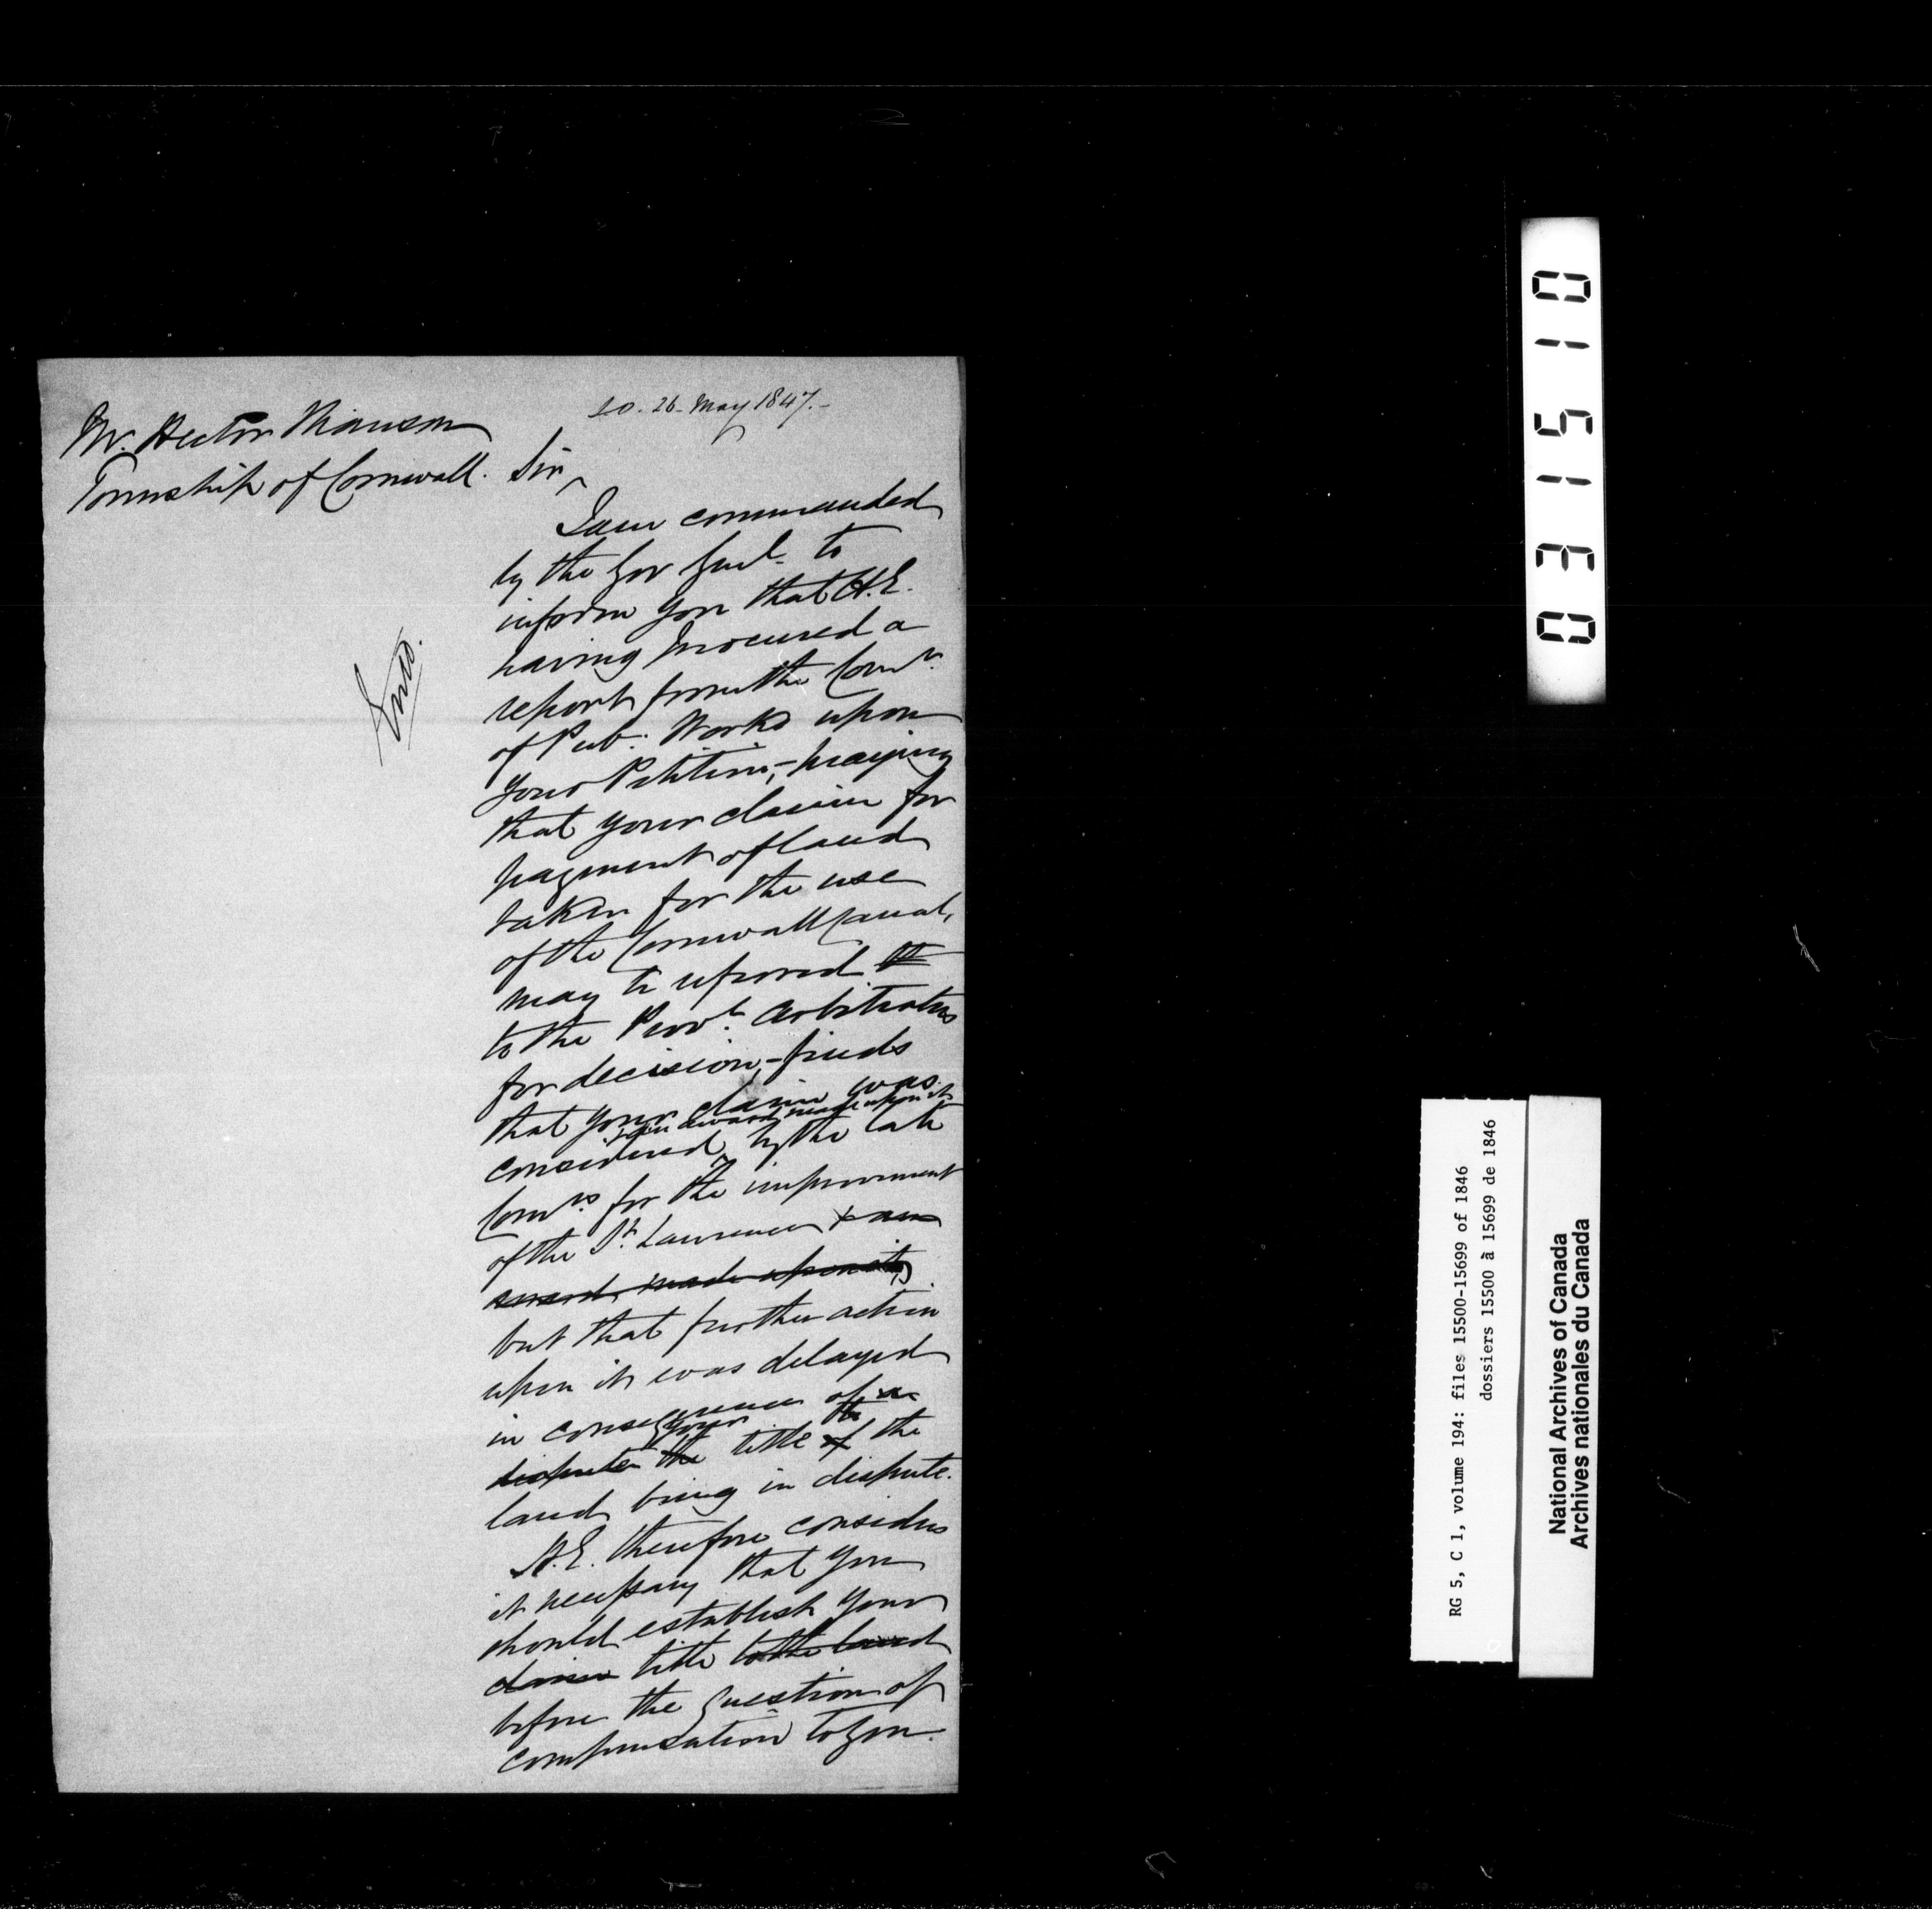 S.O. 26 May 1847.
Mr. Hector Manson
Township of Cornwall.
Sir,
I am commanded
by the Gov Genl. to
inform you that H.E.
having procured a
report from the Comrs.
of Pub: Works upon
your Petition, – praying
that your claim for
payment of land
taken for the use
of the Cornwall Canal,
may be referred to
to the Provl. Arbitrators
for decision, – finds
that your claim was
& an award made upon it
considered by the late
Comrs. for the improvement
of the St. Lawrence & an
award made upon it,
but that further action
upon it was delayed
in consequence of a
your to
dispute the title of the
land being in dispute.
H.E. therefore considers
it necessary that you
should establish your
claim title to the land
before the question of
compensation to you.
031510
RG 5, C 1, volume 194: files 15500-15699 of 1846
dossiers 15500 à 15699 de 1846
National Archives of Canada
Archives nationales du Canada